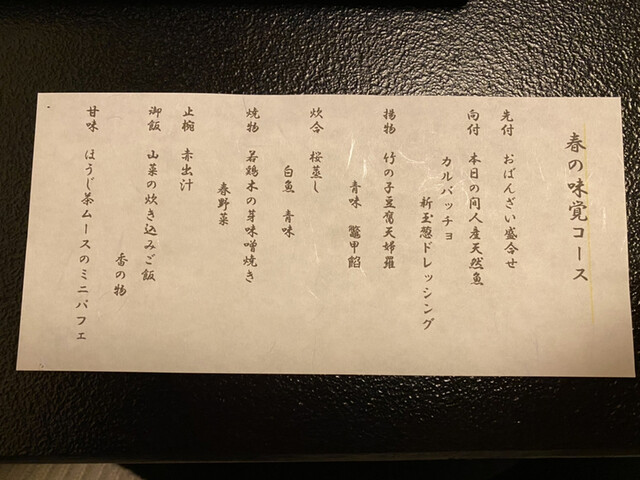 春の味覚コース
先付 おばんざい盛合せ
向付 本日の間人産天然魚
カルパッチョ
新玉葱ドレッシング
揚物 竹の子豆腐天婦羅
青味 鼈甲餡
炊合 桜蒸し
白魚 青味
焼物 若鶏木の芽味噌焼き
春野菜
止椀 赤出汁
御飯 山菜の炊き込みご飯
香の物
甘味 ほうじ茶ムースのミニパフェ